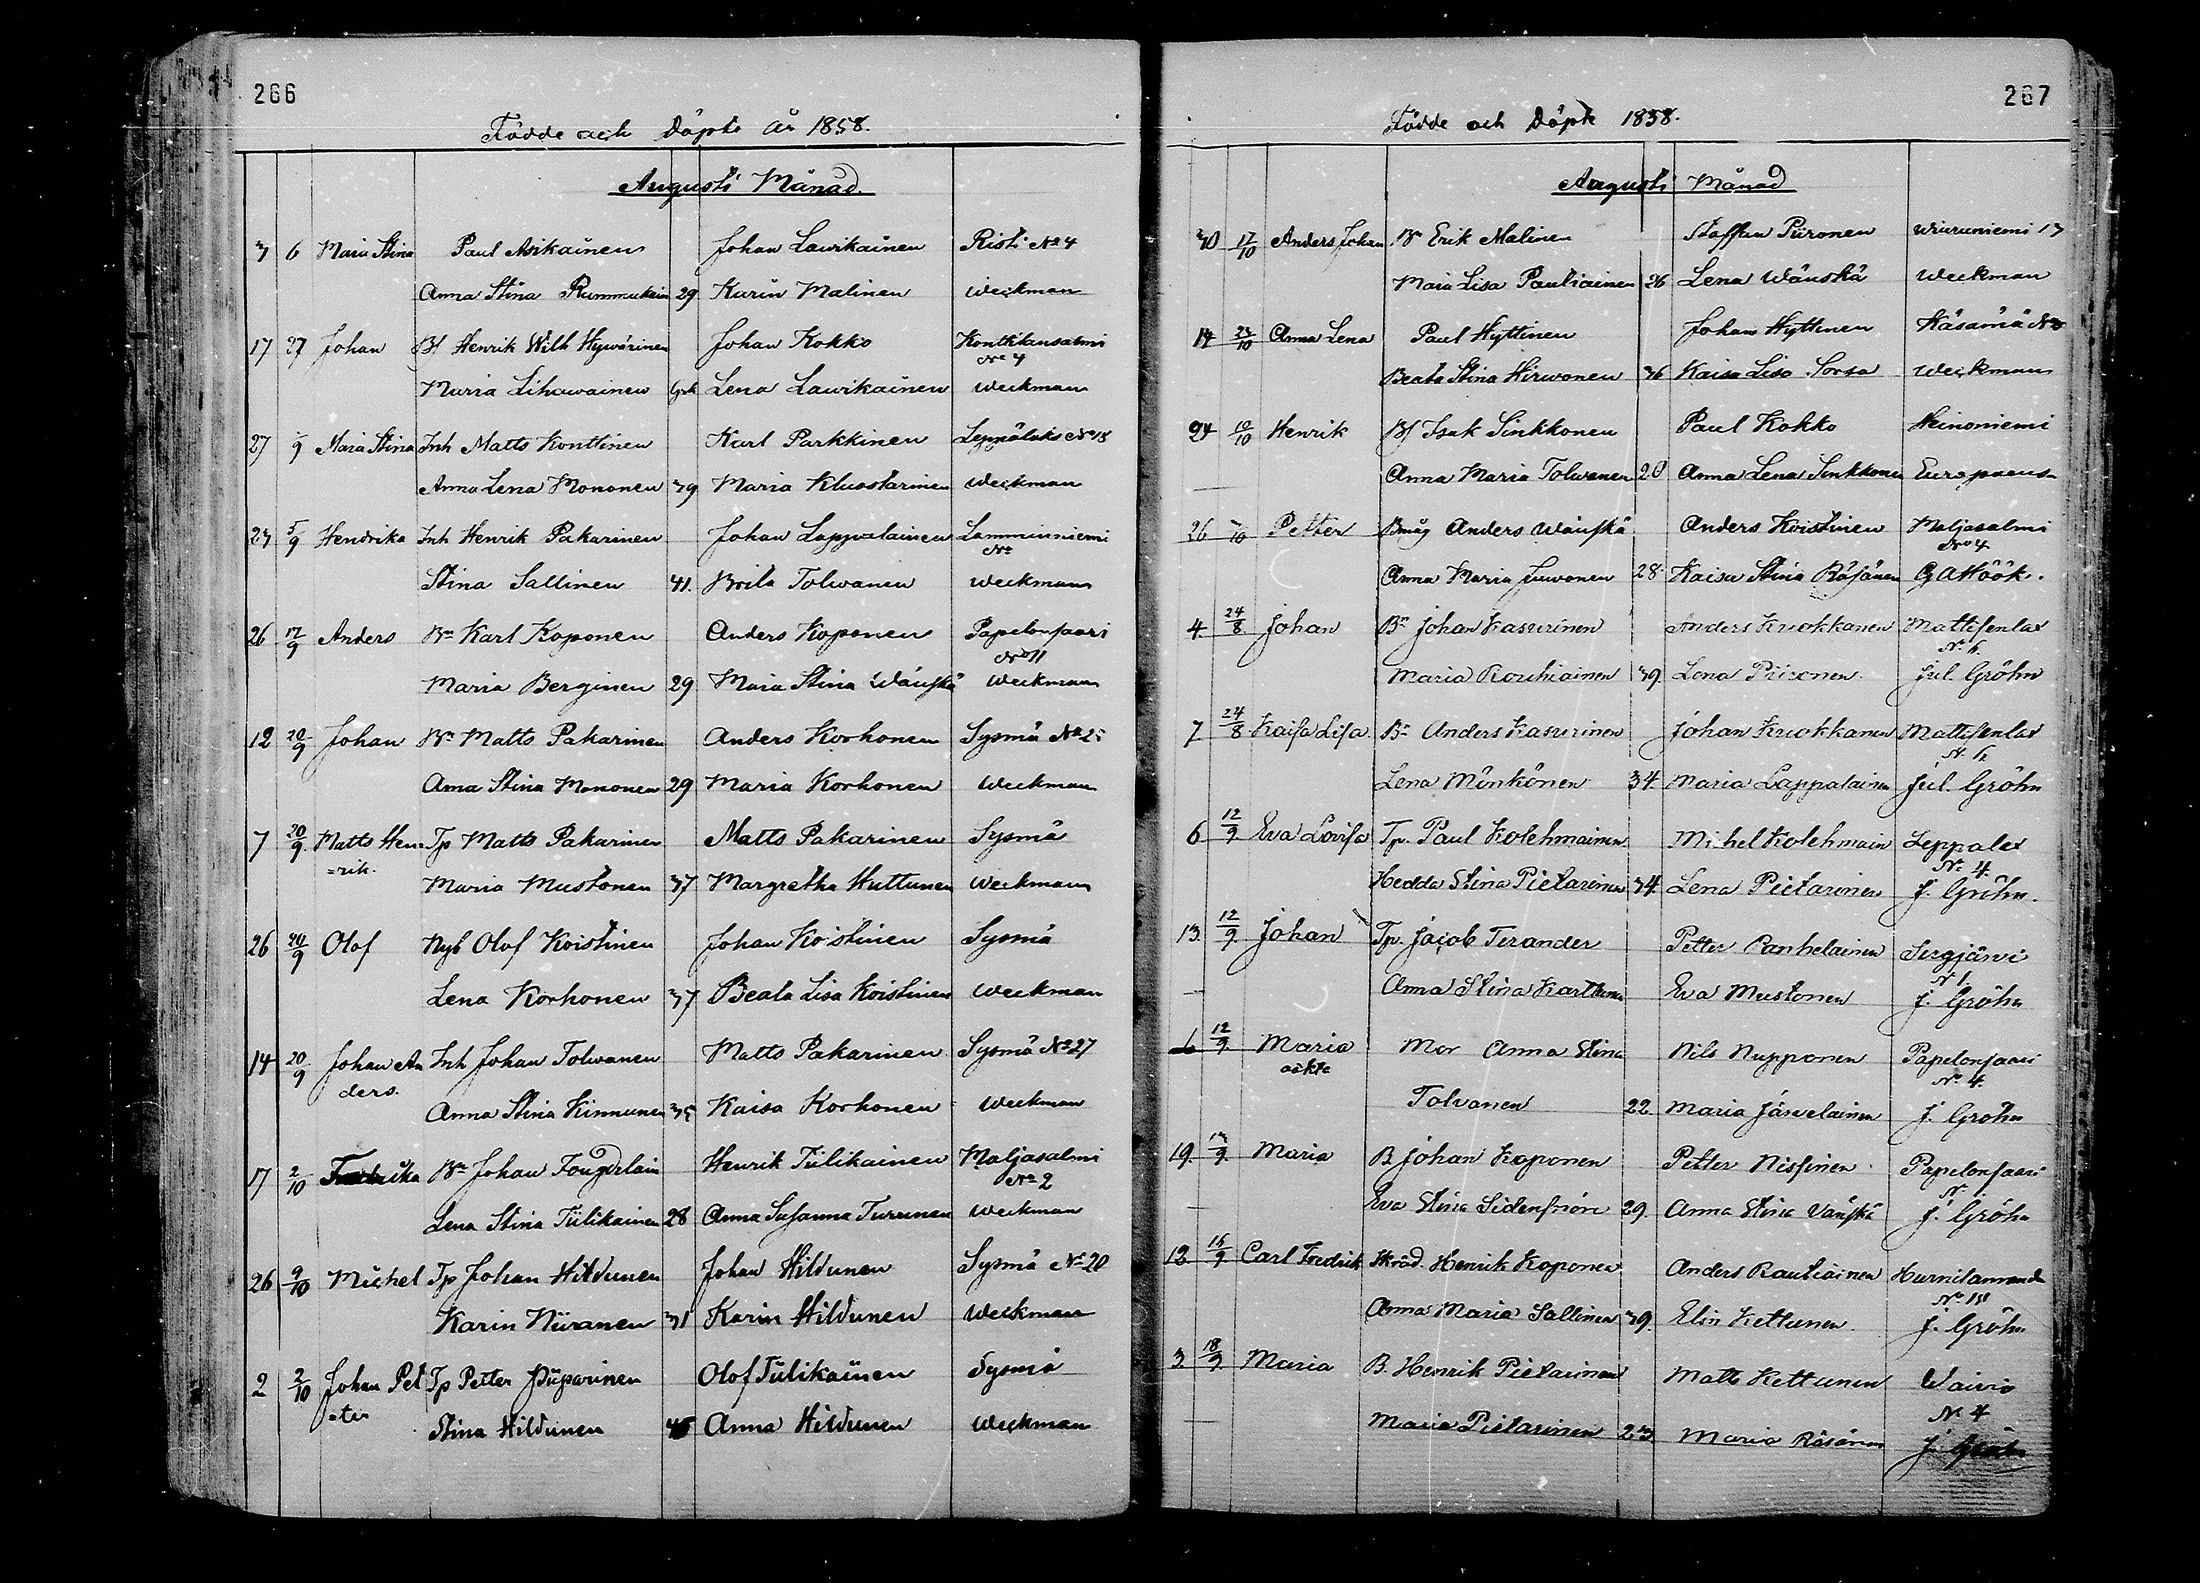 266
Födde och Döpte år 1858.
Augusti Månad.
3 6 Maria Stina Paul Asikainen Johan Laurikainen Risti No 4
Anna Stina Rummukain 29 Karin Malinen Weckman
17 27 Johan Bf Henrik Wilh Hyvärinen Johan Kokko Kontkansalmi
No 4
Maria Lihawainen Lena Laurikainen Weckman
27 9 Maria Stina Inh Matts Konttinen Karl Parkkinen No 18
Anna Lena Mononen 39 Maria Klusstarinen Weckman
23 5/9 Hendrika Inh Henrik Pakarinen Johan Lappalainen Lamminniemi
No
Stina Sallinen 41. Brita Tolwanen Weckman
26 17/9 Anders Bn Karl Koponen Anders Koponen Papelonsaari
No 11
Maria Berginen 29 Maria Stina Wänskä Weckman
12 20/9 Johan Bn Matts Pakarinen Anders Korhonen Sysmä No 25
Anna Stina Mononen 29 Maria Korhonen Weckman
7 20/9. Matts Hen Tp Matts Pakarinen Matts Pakarinen Sysmä
=rik. Maria Mustonen 37 Margretha Huttunen Weckman
26 20/9 Olof Nyb Olof Koistinen Johan Koistinen Sysmä
Lena Korhonen 37 Beata Lisa Koistinen Weckman
14 20/9. Johan An Inh Johan Tolwanen Matts Pakarinen Sysmä No 27
ders. Anna Stina Kinnunen 35 Kaisa Korhonen Weckman
17 2/10 Fredrika Bn Johan Fougderlain Henrik Tiilikainen Maljasalmi
No 2
Lena Stina Tiilikainen 28 Anna Susanna Turunen Weckman
26 9/10 Michel Tp Johan Hildunen Johan Hildunen Sysmä No 20
Karin Niiranen 31 Karin Hildunen Weckman
2 2/10 Johan Pet Tp Petter Piiparinen Olof Tiilikainen Sysmä
=ter Stina Hildunen 45 Anna Hildunen Weckman
267
Födde och Döpte 1858.
Augusti Månad
30 17/10 Anders Johan Bn Erik Malinen Staffan Piironen Wiuruniemi 13
Maia Lisa Pautiainen 26 Lena Wänskä Weckman
14 23/10 Anna Lena Paul Hyttinen Johan Hyttinen Käsämä No
Beata Stina Hirwonen 36 Kaisa Lisa Sorsa Weckman
24 10/10 Henrik Bf Isak Sinkkonen Paul Kokko Heinoniemi
Anna Maria Tolwanen 20 Anna Lena Sinkkonen Europaeus
26 3/10 Petter Bmåg Anders Wänskä Anders Koistinen Maljasalmi
No 4
Anna Maria Juvonen 28 Kaisa Stina Räsänen G A Höök.
4. 24/8 Johan Bn Johan Kasurinen Anders Kuokkanen Mattisenlax
N. 6.
Maria Rouhiainen 39. Lena Piironen. Jul. Gröhn
7 24/8 Kaisa Lisa. Bn Anders Kasurinen Johan Kuokkanen Mattisenlax
N. 6.
Lena Mönkönen 34. Maria Lappalainen Jul. Gröhn
6 12/9. Eva Lovisa Tp. Paul Kolehmainen Michel Kolehmain Leppalax
No 4.
Hedda Stina Pietarinen 34. Lena Pietarinen J. Gröhn.
13. 12/9. Johan Tp. Jacob Terander Petter Panhelainen Sergjärvi
N 1
Anna Stina Karttunen Eva Mustonen J. Gröhn
6 12/9. Maria Mor Anna Stina Nils Nupponen Papelonsaari
oäkta No 4.
Tolvanen 22 Maria Järvelainen J. Gröhn
19. 13/9. Maria B Johan Koponen Petter Nissinen Papelonsaari
N.
Eva Stina Sidensnöre 29. Anna Stina Vänskä J. Gröhn
12 15/9 Carl Fredrik Skräd. Henrik Koponen Anders Rautiainen Hurnilanranda
No 18
Anna Maria Sallinen 39. Elin Kettunen J. Gröhn
3 18/9. Maria B. Henrik Pietarinen Matts Kettunen Waivio
N. 4
Maria Pietarinen 23 Maria Räsänen J. Gröhn